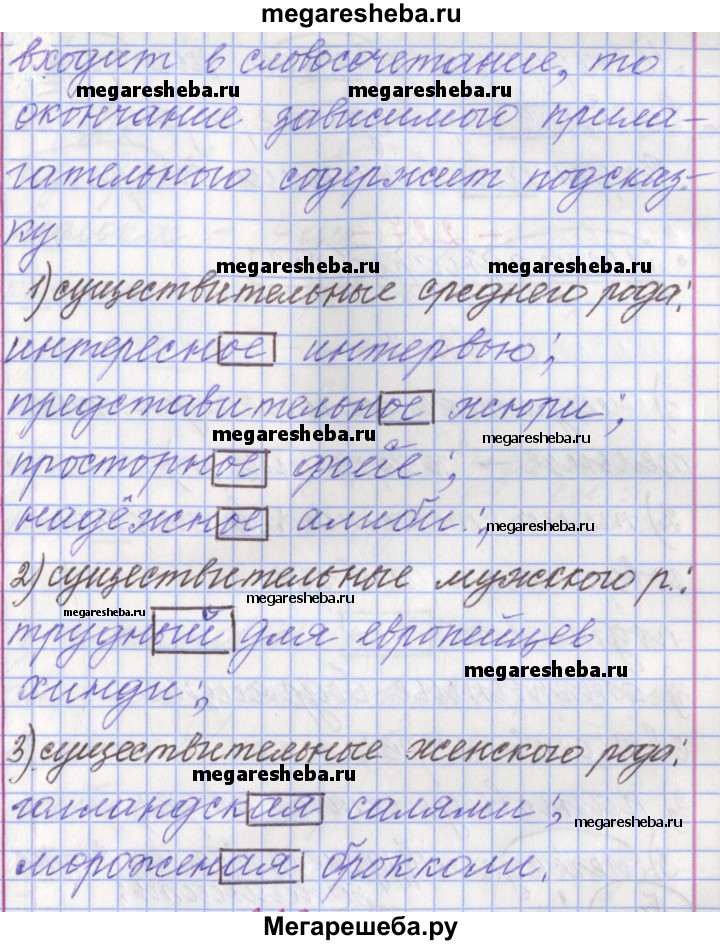 megaresheba.ru
входит в словосочетание, то
megaresheba.ru megaresheba.ru
окончание зависимого прила-
гательного содержит подсказ-
ку.
megaresheba.ru megaresheba.ru
1) существительные среднего рода:
интересное интервью;
представительное жюри;
megaresheba.ru megaresheba.ru
просторное фойе;
надёжное алиби;
megaresheba.ru
2) существительные мужского р.:
megaresheba.ru megaresheba.ru
трудный для европейцев
megaresheba.ru
хинди;
3) существительные женского рода:
megaresheba.ru
голландская салями;
megaresheba.ru
мороженая брокколи.
Мегарешеба.ру